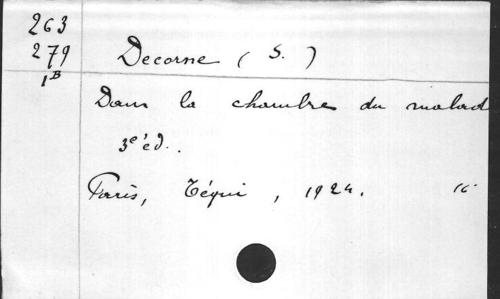 263
279
1B
Decorne ( S. )
Dans la chambre du malad
3e éd.
Paris, Téqui, 1924. 16